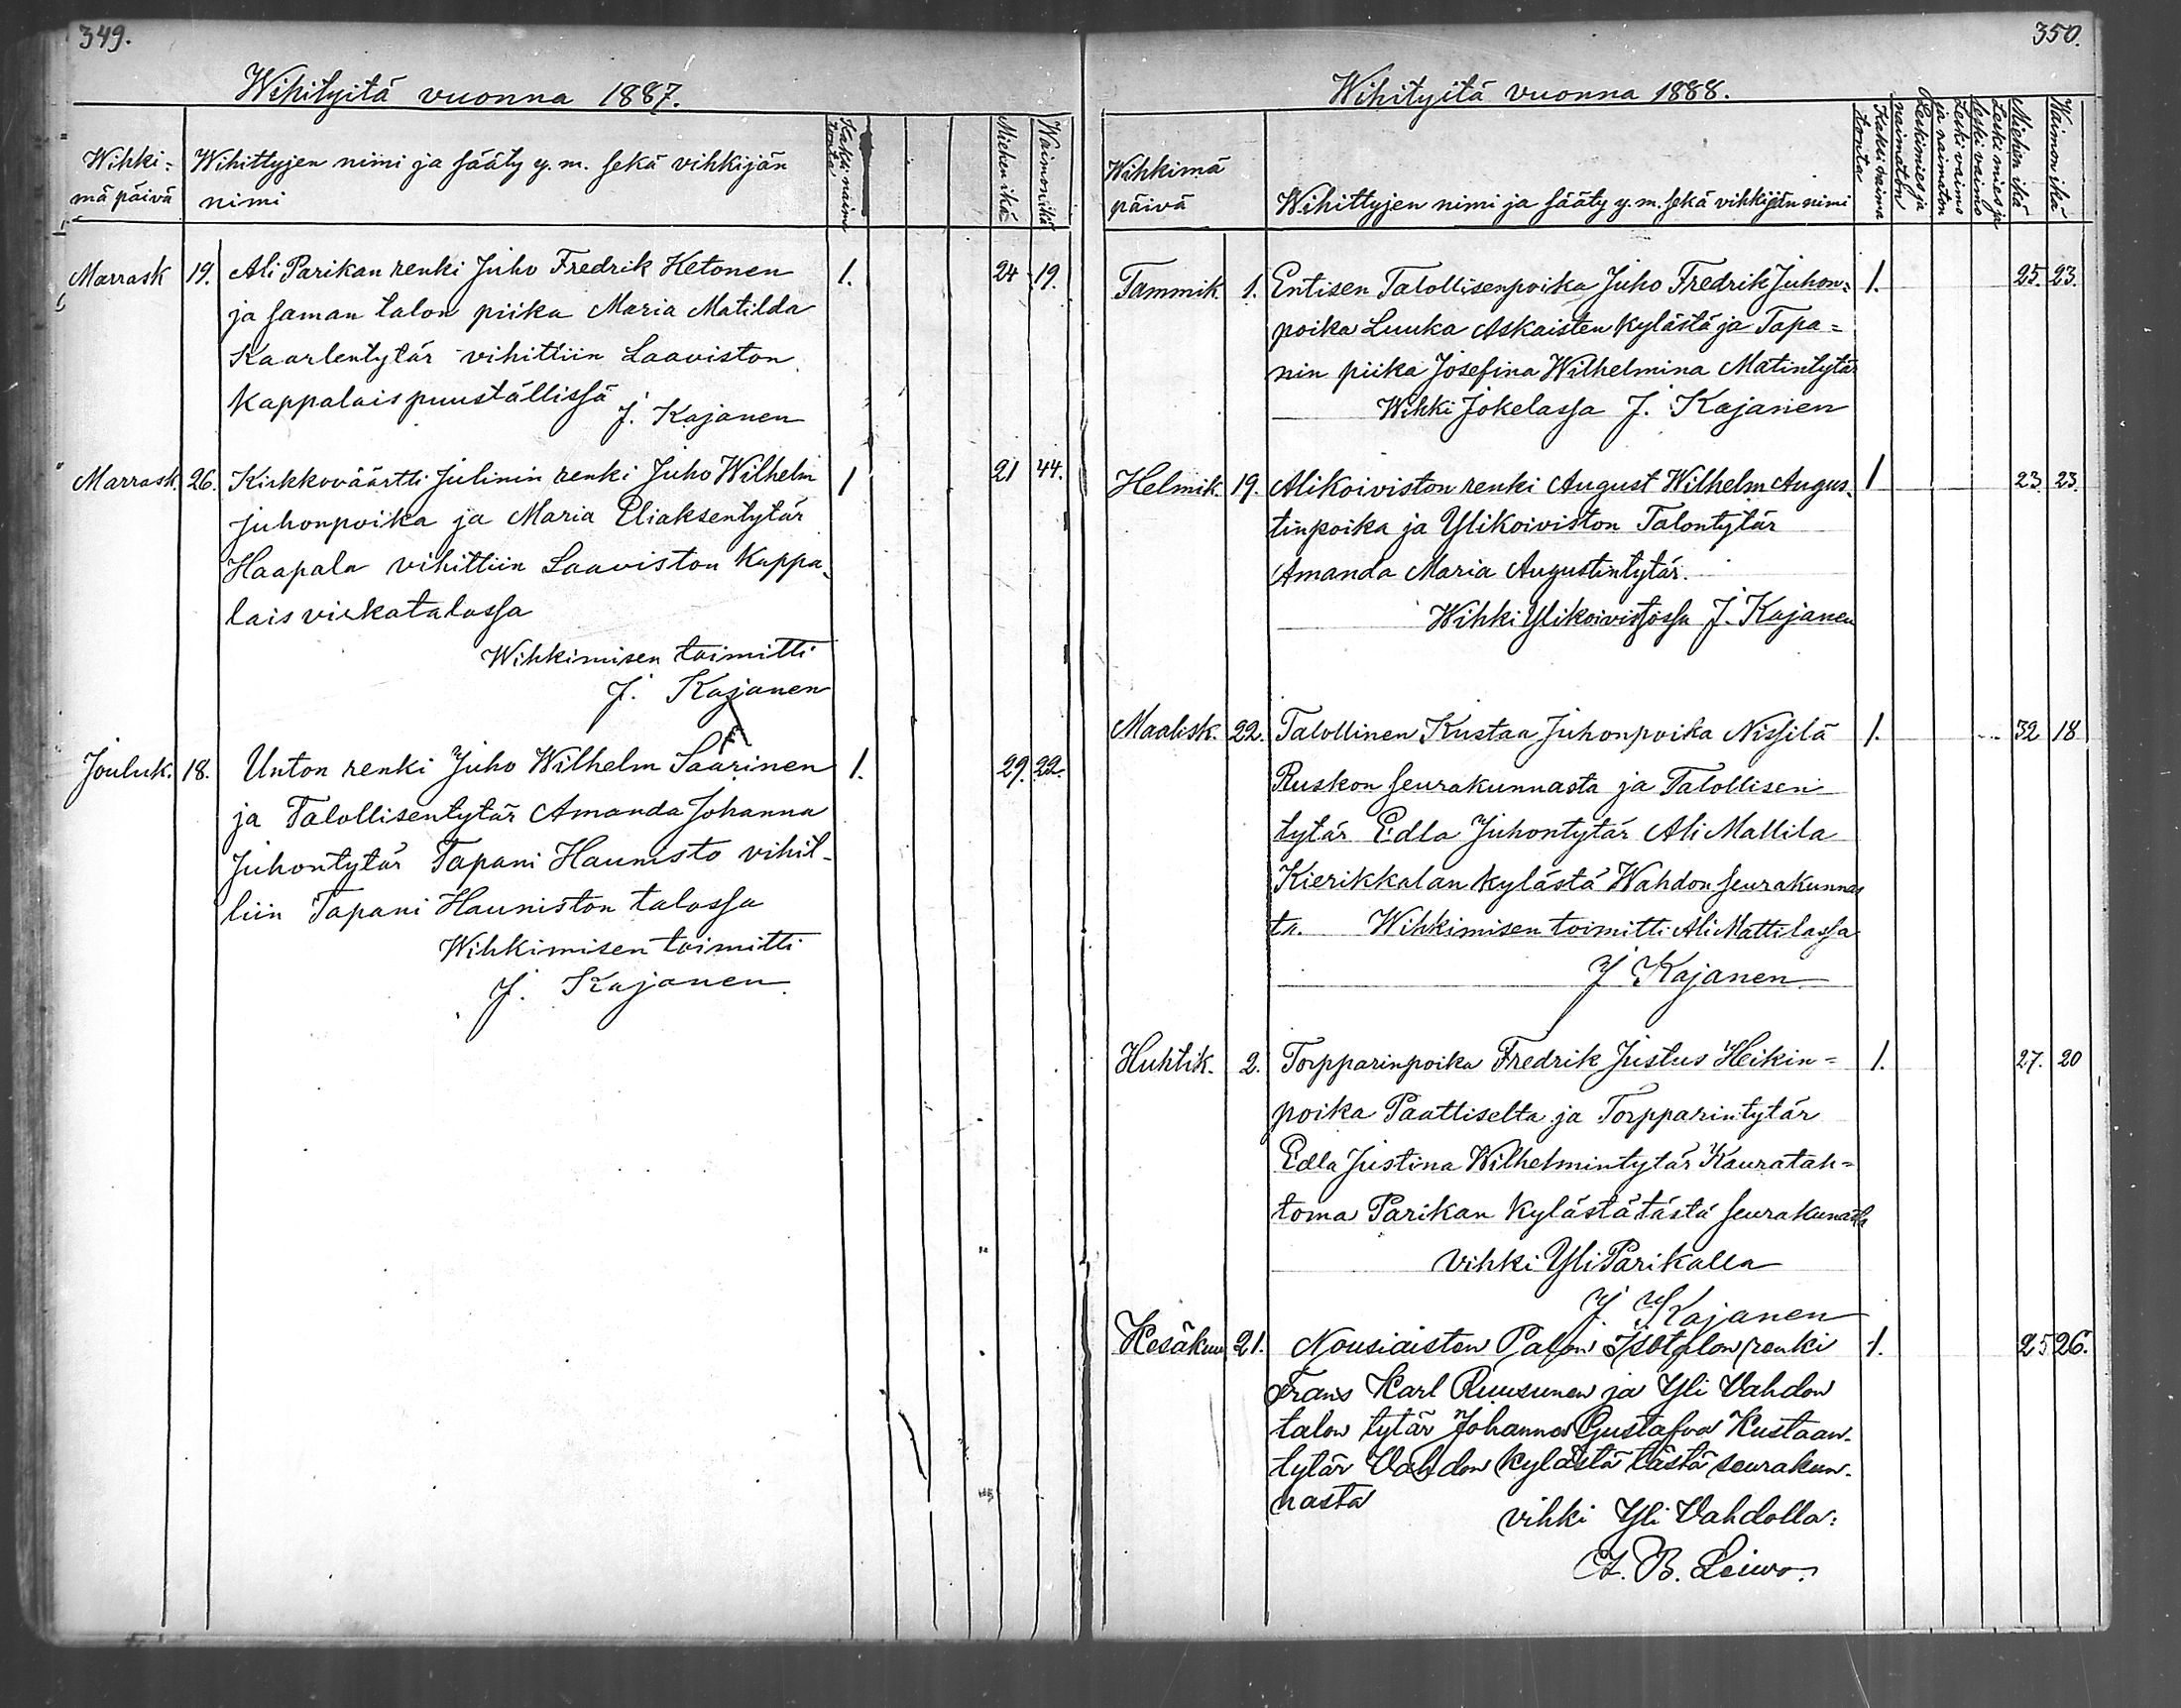 349.
Wihityitä vuonna 1887.
Wihki-
mä päivä
Wihittyjen nimi ja sääty y.m. sekä vihkijän
nimi
Kaksi naima
tonta
Miehen ikä
Waimon ikä
Marrask 19. Ali Parikan renki Juho Fredrik Ketonen 1. 24 19.
ja saman talon piika Maria Matilda
Kaarlentytär vihittiin Laaviston
Kappalaispuuställissä
J. Kajanen
Marrask. 26. Kirkkoväärtti Julinin renki Juho Wilhelm 1 21 44.
Juhonpoika ja Maria Eliaksentytär
Haapala vihittiin Laaviston Kappa-
lais virkatalossa
Wihkimisen toimitti
J. Kajanen
Jouluk. 18. Unton renki Juho Wilhelm Saarinen 1. 29. 22.
ja Talollisentytär Amanda Johanna
Juhontytär Tapani Haunisto vihit-
tiin Tapani Hauniston talossa
Wihkimisen toimitti
J. Kajanen.
350.
Wihityitä vuonna 1888.
Wihkimä
päivä
Wihittyjen nimi ja sääty y.m. sekä vihkijän nimi
Kaksi naima
tonta
Leskimies ja
naimaton
Leski vaimo
ja naimaton
Leski mies ja
leski vaimo
Miehen ikä
Waimon ikä
Tammik 1. Entisen Talollisenpoika Juho Fredrik Juhon- 1. 25. 23.
poika Luuka Askaisten kylästä ja Tapa-
nin piika Josefina Wilhelmina Matintytär
Wihki Jokelassa J. Kajanen
Helmik. 19. Alikoiviston renki August Wilhelm Augus- 1 23. 23.
tinpoika ja Ylikoiviston Talontytär
Amanda Maria Augustintytär.
Wihki Ylikoivistossa J. Kajanen
Maalisk. 22. Talollinen Kustaa Juhonpoika Nissilä 1. 32 18
Ruskon seurakunnasta ja Talollisen
tytär Edla Juhontytär Ali Mattila
Kierikkalan kylästä Wahdon seurakunnas
ta. Wihkimisen toimitti Ali Mattilassa
J Kajanen
Huhtik. 2. Torpparinpoika Fredrik Justus Heikin- 1. 27. 20
poika Paattiselta ja Torpparintytär
Edla Justina Wilhelmintytär Kauratah-
toma Parikan kylästä tästä seurakunasta
vihki Yli Parikalla
J. Kajanen
Kesäkuu 21. Nousiaisten Palon Isotalon renki 1. 25 26.
Frans Karl Ruusunen ja Yli Vahdon
talon tytär Johanna Gustafva Kustaan-
tytär Vahdon kylästä tästä seurakun-
nasta
vihki Yli Vahdolla:
Leiwo.